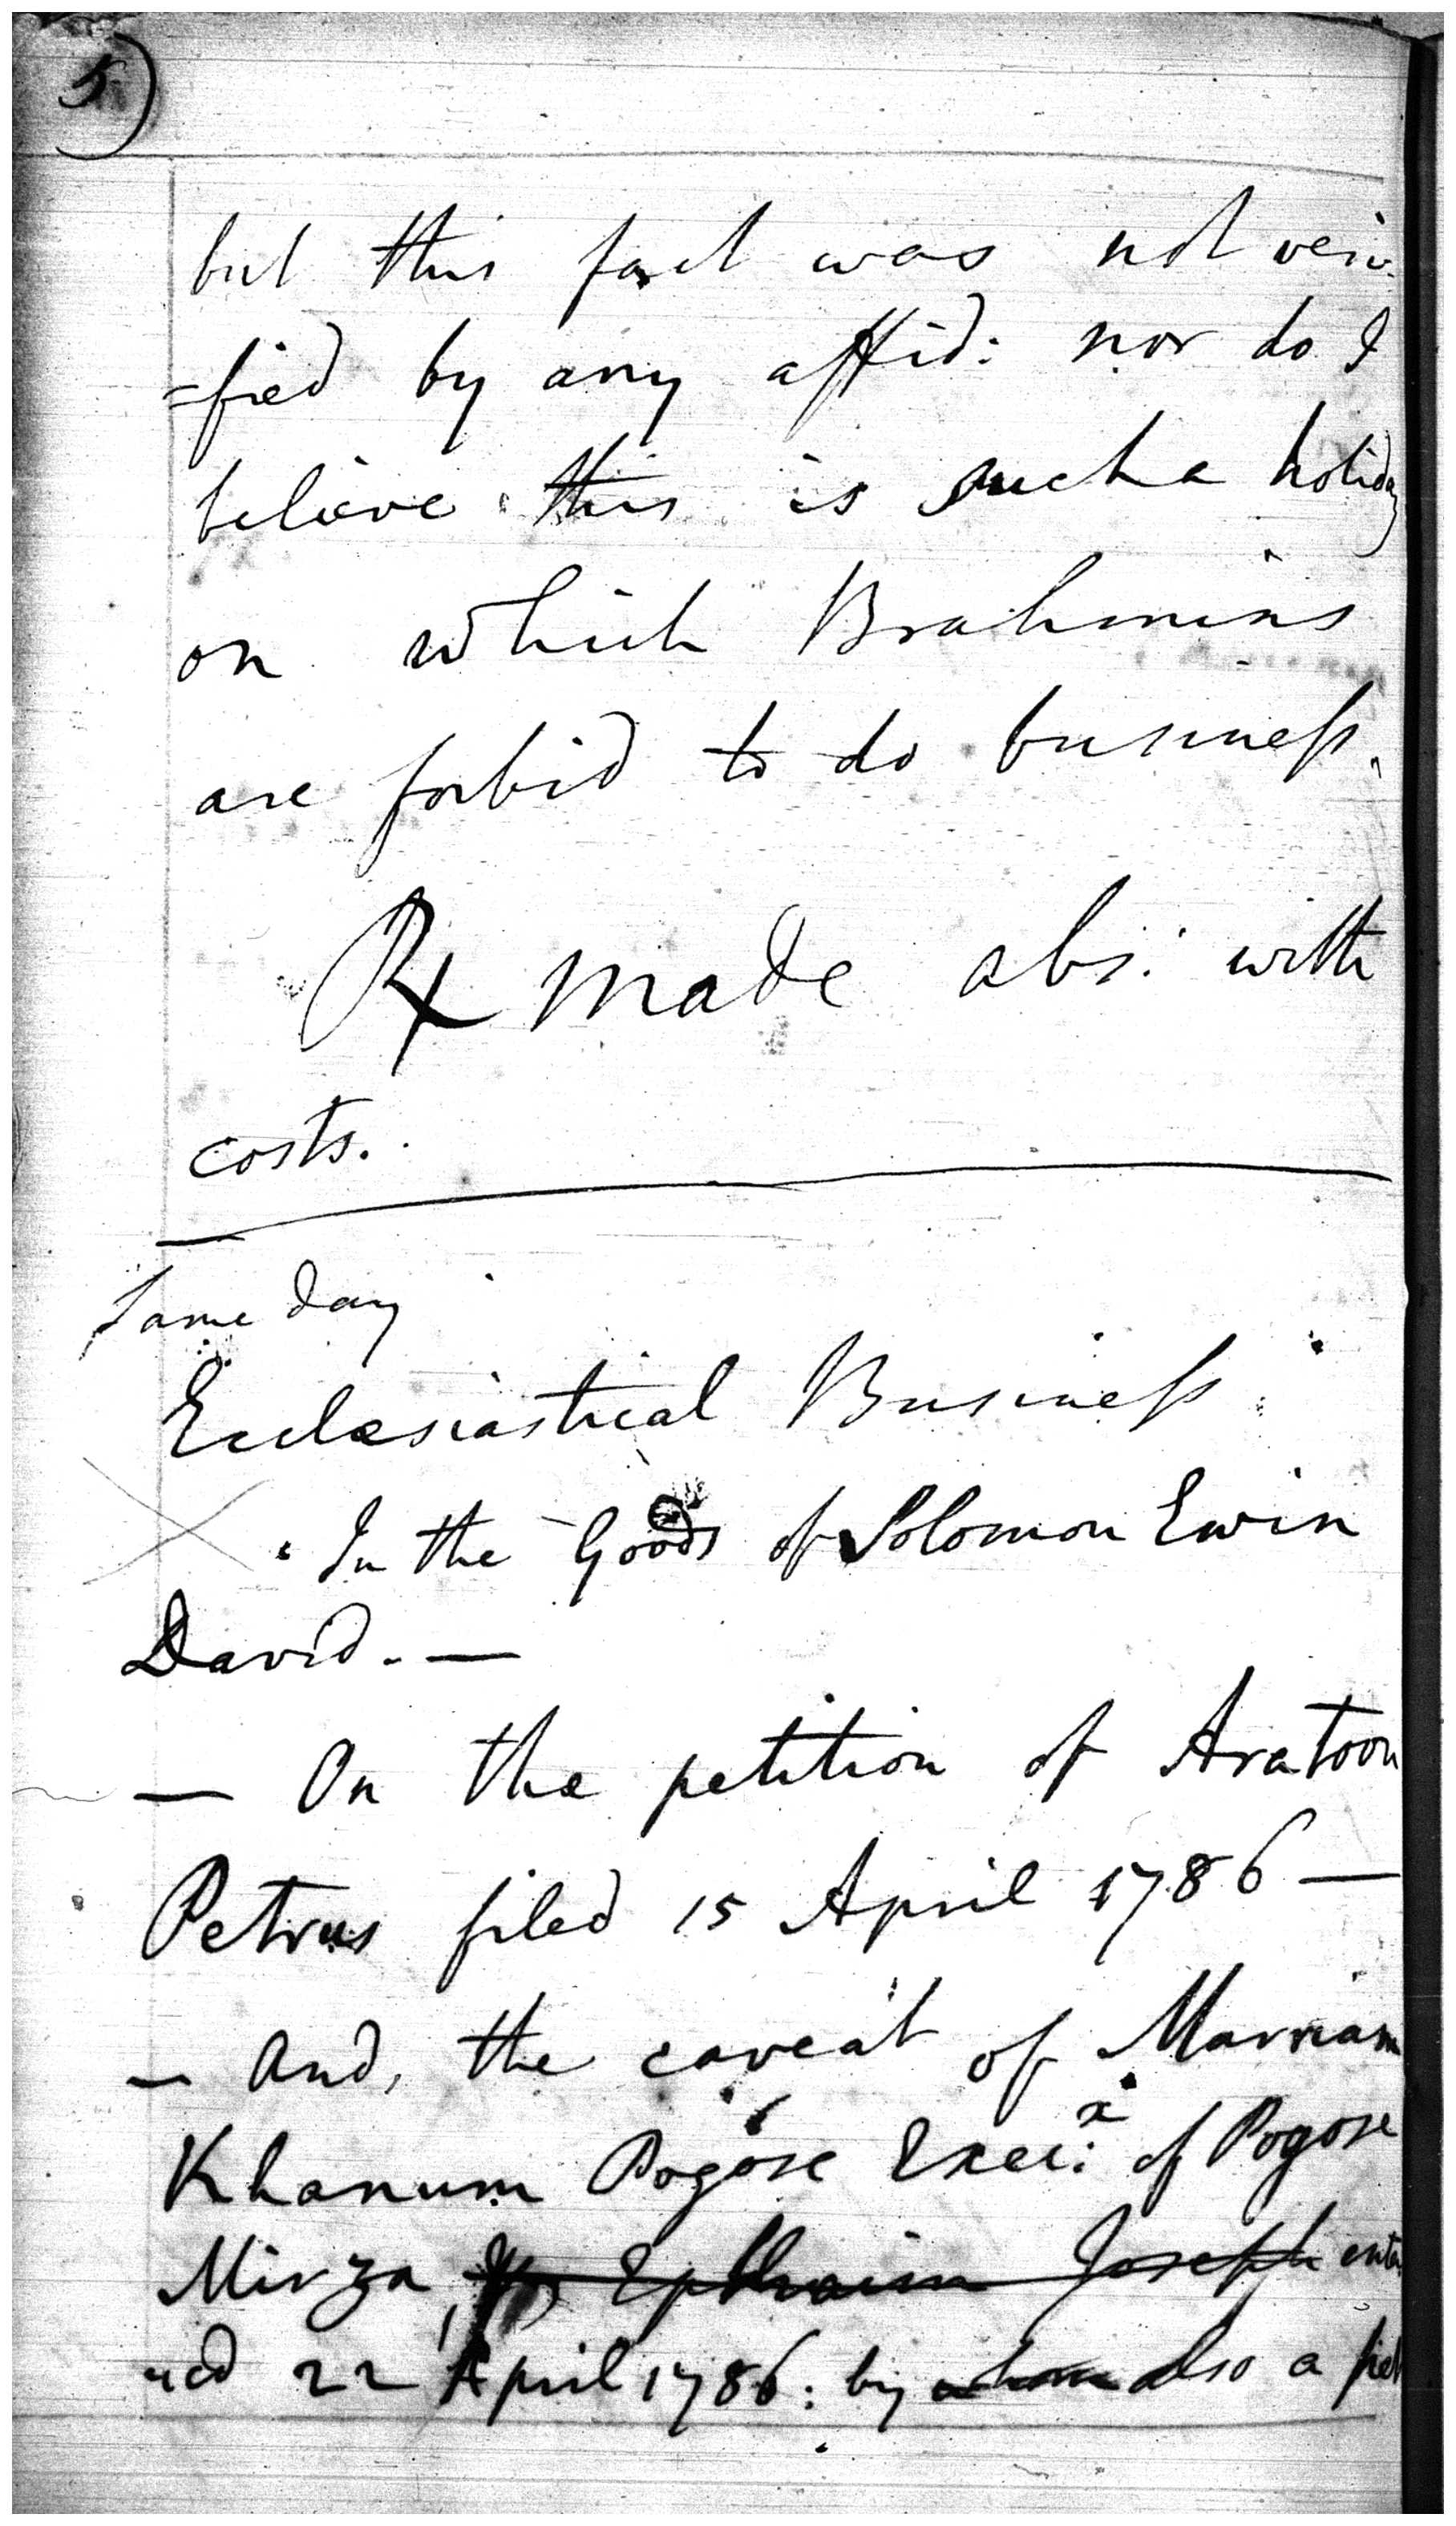 5)
but this fact was not veri-
=fied by any affid: nor do I
believe this is such a holiday
on which Brahmins
are forbid to do business.
R made abs: with
costs.
Same day
Ecclesiastical Business
In the Goods of Solomon Ewin
David. —
— On the petition of Aratoon
Petrus filed 15 April 1786 —
— And, the caveat of Marriam
Khanum Pogose Exec:x of Pogose
Mirza Ephraim Joseph ente
red 22 April 1786: by whom also a pet